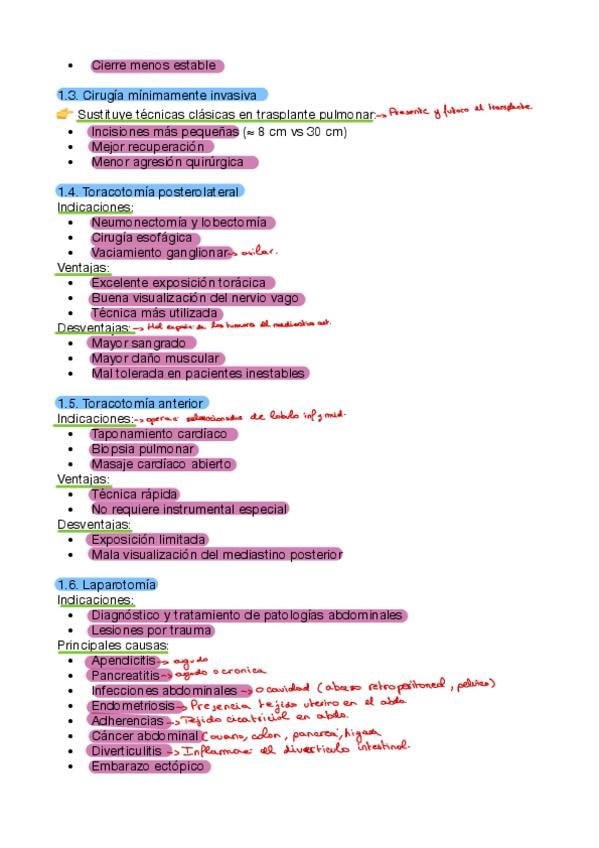 • Cierre menos estable
1.3. Cirugía mínimamente invasiva
👉 Sustituye técnicas clásicas en trasplante pulmonar: -> Presente y futuro del transplante.
• Incisiones más pequeñas (≈ 8 cm vs 30 cm)
• Mejor recuperación
• Menor agresión quirúrgica
1.4. Toracotomía posterolateral
Indicaciones:
• Neumonectomía y lobectomía
• Cirugía esofágica
• Vaciamiento ganglionar -> axilar.
Ventajas:
• Excelente exposición torácica
• Buena visualización del nervio vago
• Técnica más utilizada
Desventajas: -> Mal de los tumores del mediastino ant.
• Mayor sangrado
• Mayor daño muscular
• Mal tolerada en pacientes inestables
1.5. Toracotomía anterior
Indicaciones: -> de lobulo inf y mid.
• Taponamiento cardíaco
• Biopsia pulmonar
• Masaje cardíaco abierto
Ventajas:
• Técnica rápida
• No requiere instrumental especial
Desventajas:
• Exposición limitada
• Mala visualización del mediastino posterior
1.6. Laparotomía
Indicaciones:
• Diagnóstico y tratamiento de patologías abdominales
• Lesiones por trauma
Principales causas:
• Apendicitis -> agudo
• Pancreatitis -> agudo o cronica
• Infecciones abdominales -> o cavidad (abceso retroperitoneal, pelvico)
• Endometriosis -> Presencia tejido uterino en el abdo
• Adherencias -> Tejido cicatricial en abdo.
• Cáncer abdominal (ovario, colon, pancreas, higado
• Diverticulitis -> Inflamacion del diverticulo intestinal.
• Embarazo ectópico